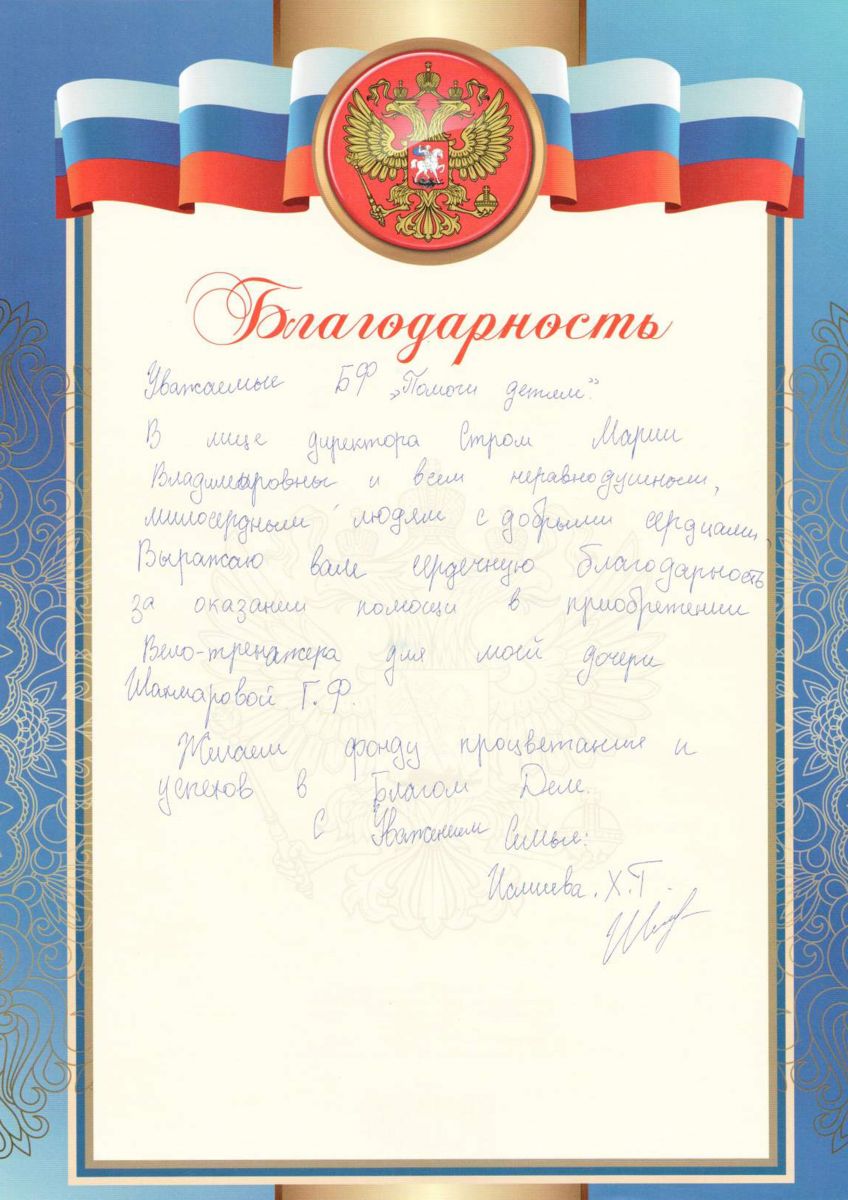 Благодарность
Уважаемые БФ „Помоги детям".
В лице директора Стром Марии
Владимировны и всем неравнодушным,
милосердным людям с добрыми сердцами,
Выражаю вам сердечную благодарность
за оказании помощи в приобретении
Вело-тренажера для моей дочери
Шахмаровой Г.Ф.
Желаем фонду процветания и
успехов в Благом Деле.
С Уважением Семья:
Х.Г.